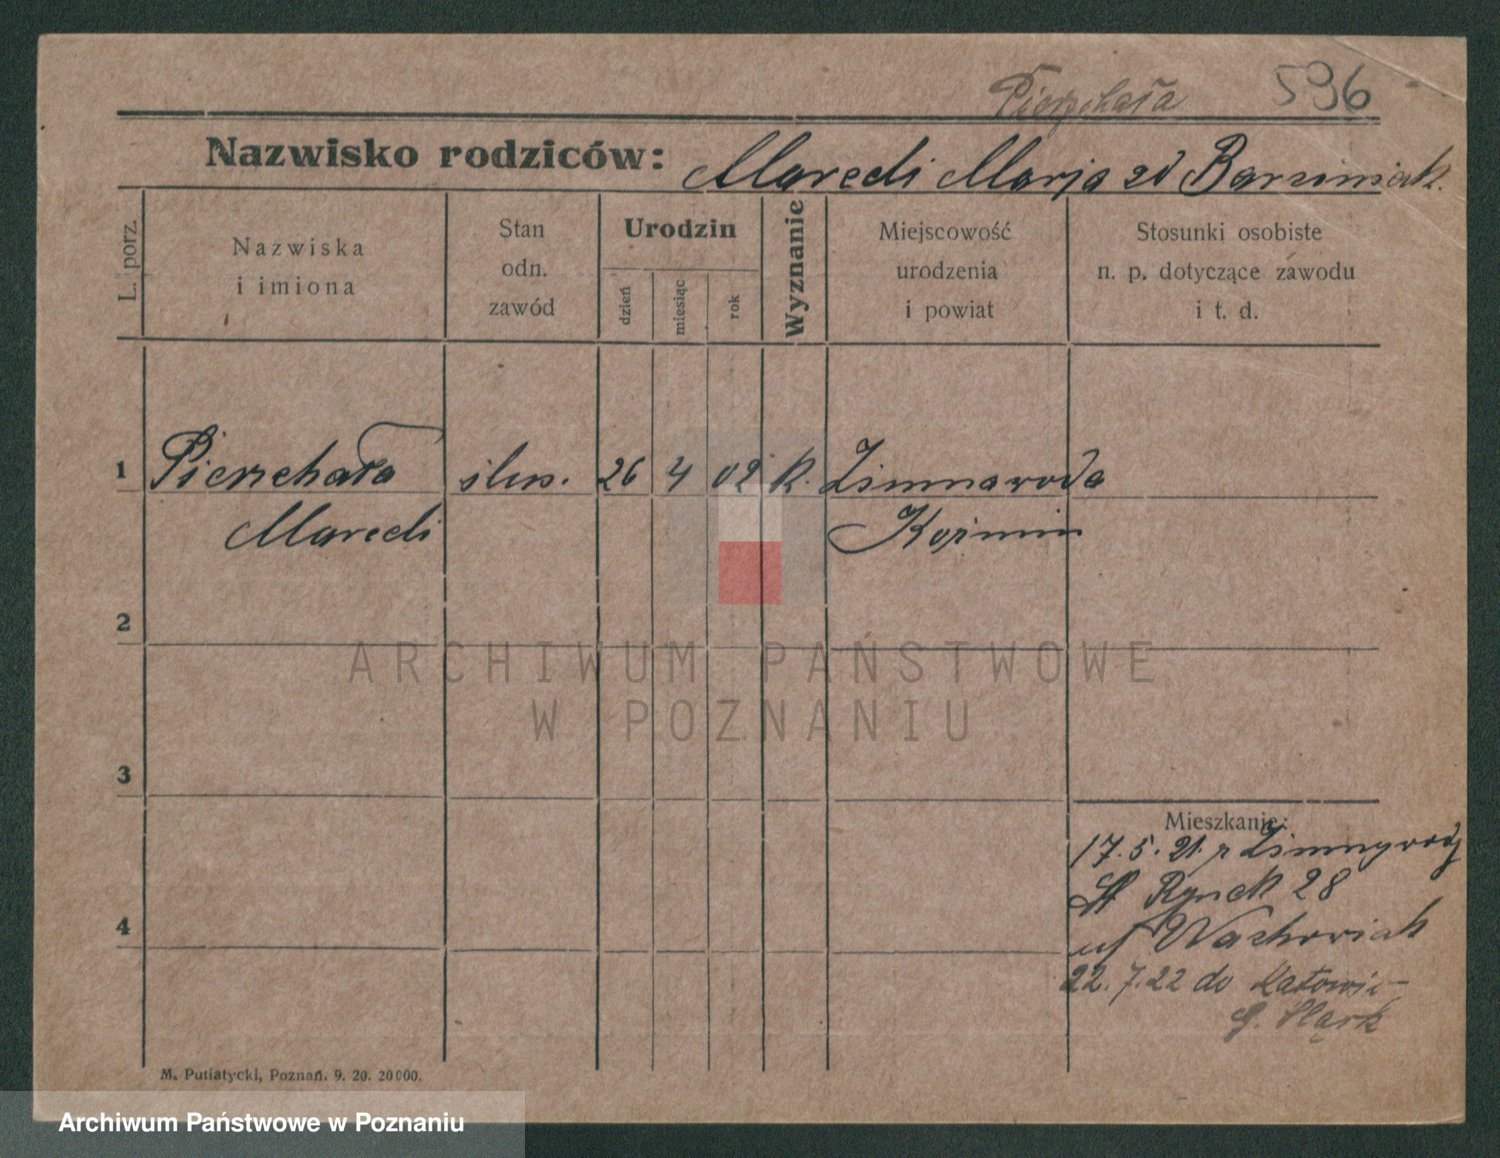 Pierzchała 596
Nazwisko rodziców: Marceli Marja zd Barziniak.
L. porz.
Nazwiska
i imiona
Stan
odn.
zawód
Urodzin
dzień
miesiąc
rok
Wyznanie
Miejscowość
urodzenia
i powiat
Stosunki osobiste
n. p. dotyczące zawodu
i t. d.
1 Pierzchała ślus. 26 4 02 K. Zimnawoda
Marceli Koźmin
2
ARCHIWUM PAŃSTWOWE
W POZNANIU
3
Mieszkanie:
17. 5. 21. z Zimnywody
St Rynek 28
4
uf Wachowiak
22. 7. 22 do Katowic
G. Śląsk
M. Putiatycki, Poznań. 9. 20. 20000.
Archiwum Państwowe w Poznaniu